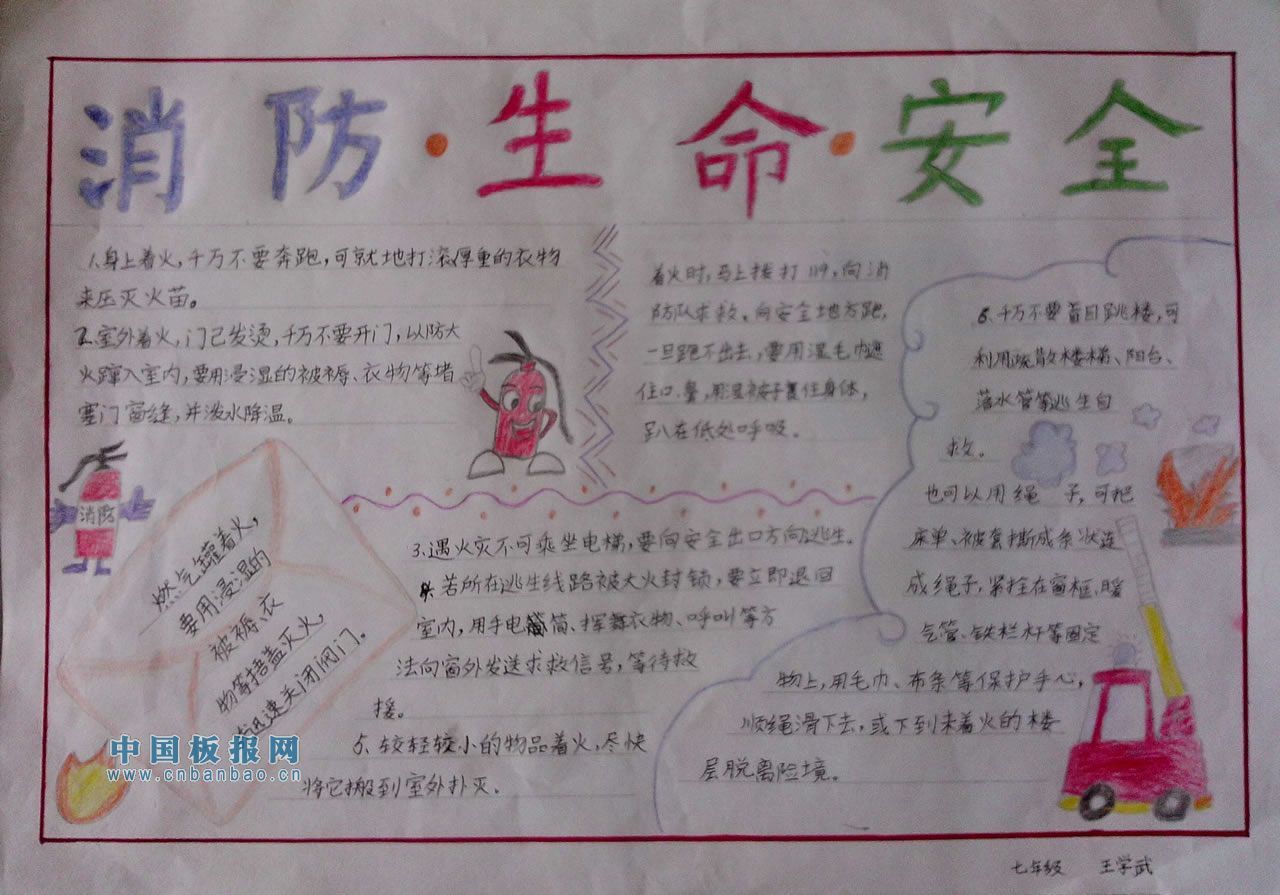 消防·生命·安全
1.身上着火,千万不要奔跑,可就地打滚厚重的衣物
来压灭火苗。
2.室外着火,门已发烫,千万不要开门,以防大
火蹿入室内,要用浸湿的被褥、衣物等堵
塞门窗缝,并泼水降温。
着火时,马上拨打119,向消
防队求救。向安全地方跑,
一旦跑不出去,要用湿毛巾遮
住口、鼻,用湿被子裹住身体,
趴在低处呼吸。
6.千万不要盲目跳楼,可
利用疏散楼梯、阳台、
落水管等逃生自
救。
也可以用绳 子,可把
床单、被套撕成条状连
成绳子,紧拴在窗框,暖
气管、铁栏杆等固定
物上,用毛巾、布条等保护手心,
顺绳滑下去,或下到未着火的楼
层脱离险境。
消防
燃气罐着火,
要用浸湿的
被褥、衣
物等捂盖灭火,
迅速关闭阀门。
3.遇火灾不可乘坐电梯,要向安全出口方向逃生。
4.若所在逃生线路被大火封锁,要立即退回
室内,用手电筒、挥舞衣物、呼叫等方
法向窗外发送求救信号,等待救
援。
5.较轻较小的物品着火,尽快
将它搬到室外扑灭。
中国板报网
www.cnbanbao.cn
七年级 王学武